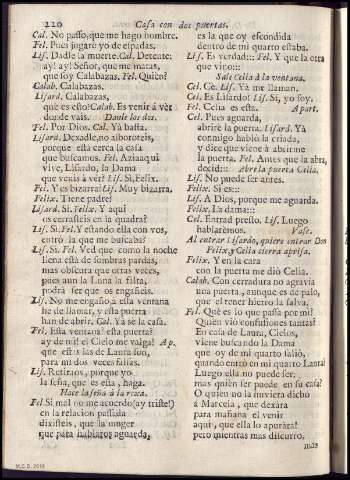 220 Casa con dos puertas.
Cal. No passo, que me hago hombre.
Fel. Pues jugarè yo de espadas.
Lis. Dadle la muerte. Cal. Detente;
ay! ay! Señor, que me matas,
que soy Calabazas. Fel. Quièn?
Calab. Calabazas.
Lisard. Calabazas,
què es esto? Calab. Es venir à vèr
donde vais. Danle los dos.
Fel. Por Dios. Cal. Yà basta.
Lisard. Dexadle, no alboroteis,
porque està cerca la casa
que buscamos. Fel. Azia aqui
vive, Lisardo, la Dama
que venis à vèr? Lis. Sì, Felix.
Fel. Y es bizarra? Lis. Muy bizarra.
Felix. Tiene padre?
Lisard. Si. Felix. Y aqui
os cerrasteis en la quadra?
Lis. Si. Fel. Y estando ella con vos,
entrò la que me buscaba?
Lis. Si. Fel. Ved que como la noche
llena està de sombras pardas,
mas obscura que otras veces,
pues aun la Luna la falta,
podrà ser que os engañeis.
Lis. No me engaño, à esta ventana
he de llamar, y esta puerta
han de abrir. Cal. Yà se la casa.
Fel. Esta ventana? esta puerta?
ay de mi! el Cielo me valga! Ap.
que estas las de Laura son,
para mi dos veces falsas.
Lis. Retiraos, porque yo
la seña, que es esta, haga.
Hace la seña à la reca.
Fel. Si mal no me acuerdo (ay triste!)
en la relacion passada
dixisteis, que la muger
que para hablaros aguarda,
es la que oy escondida
dentro de mi quarto estaba.
Lis. Es verdad::: Fel. Y que la otra
que vino:::
Sale Celia à la ventana.
Cel. Ce. Lis. Yà me llaman.
Cel. Es Lisardo? Lis. Si, yo soy.
Fel. Celia es esta. A part.
Cel. Pues aguarda,
abrirè la puerta. Lisard. Yà
conmigo hablò la criada,
y dice que viene à abrirme
la puerta. Fel. Antes que la abra,
decid::: Abre la puerta Celia.
Lis. No puede ser antes.
Fel. Si es:::
Lis. A Dios, porque me aguarda.
Felix. La dama:::
Cel. Entrad presto. Lis. Luego
hablarèmos. Vase.
Al entrar Lisardo, quiere entrar Don
Felix, y Celia cierra aprisa.
Felix. Y en la cara
con la puerta me diò Celia.
Calab. Con cerradura no agravia
una puerta, aunque es de palo,
que el tener hierro la salva.
Fel. Què es lo que passa por mi?
Quièn viò confusiones tantas?
En casa de Laura, Cielos,
viene buscando la Dama
que oy de mi quarto saliò,
quando entrò en mi quarto Laura!
Luego ella no puede ser;
mas quièn ser puede en su casa?
O quien no la huviera dicho
à Marcela, que dexàra
para mañana el venir
aqui, que ella lo apurara!
pero mientras mas discurro,
mas
M.C.D. 2018